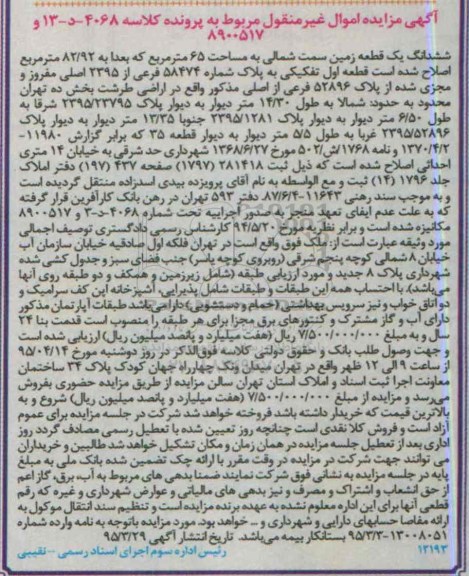 آگهی مزایده اموال غیرمنقول مربوط به پرونده کلاسه ۴۰۶۸-د-۱۳ و
۸۹۰۰۵۱۷
ششدانگ یک قطعه زمین سمت شمالی به مساحت ۶۵ مترمربع که بعدا به ۸۲/۹۲ مترمربع
اصلاح شده است قطعه اول تفکیکی به پلاک شماره ۵۸۴۷۴ فرعی از ۲۳۹۵ اصلی مفروز و
مجزی شده از پلاک ۵۲۸۹۶ فرعی از اصلی مذکور واقع در اراضی طرشت بخش ده تهران
محدود به حدود: شمالا به طول ۱۴/۳۰ متر دیوار به دیوار پلاک ۲۳۹۵/۲۳۷۹۵ شرقا به
طول ۶/۵۰ متر دیوار به دیوار پلاک ۲۳۹۵/۱۲۸۱ جنوبا ۱۳/۳۵ متر دیوار به دیوار پلاک
۲۳۹۵/۵۲۸۹۶ غربا به طول ۵/۵ متر دیوار به دیوار قطعه ۳۵ که برابر گزارش ۱۱۹۸۰-
۱۳۷۰/۴/۲ و نامه ۱۷۶۸/ش/۵۰۲ مورخ ۱۳۶۸/۶/۲۷ شهرداری حد شرقی به خیابان ۱۴ متری
احداثی اصلاح شده است که ذیل ثبت ۲۸۱۴۱۸ (۱۷۹۷) صفحه ۴۳۷ (۱۹۷) دفتر املاک
جلد ۱۷۹۶ (۱۴) ثبت و مع الواسطه به نام آقای پرویزده بیدی اسدزاده منتقل گردیده است
و به موجب سند رهنی ۱۱۶۴۳-۸۷/۶/۴ دفتر ۵۹۳ تهران در رهن بانک کارآفرین قرار گرفته
که به علت عدم ایفای تعهد منجر به صدور اجراییه تحت شماره ۴۰۶۸-د-۳ و ۸۹۰۰۵۱۷
مکانیزه شده است و برابر نظریه مورخ ۹۴/۵/۲۰ کارشناس رسمی دادگستری توصیف اجمالی
مورد وثیقه عبارت است از: ملک فوق واقع است در تهران فلکه اول صادقیه خیابان سازمان آب
خیابان ۸ شمالی کوچه پنجم شرقی (روبروی کوچه یاسر) جنب فضای سبز و جدول کشی شده
شهرداری پلاک ۸ جدید و مورد ارزیابی طبقه (شامل زیرزمین و همکف و دو طبقه روی آنها
می‌باشد). با احتساب همه این طبقات و طبقات شامل پذیرایی، آشپزخانه این کف سرامیک و
دو اتاق خواب و نیز سرویس بهداشتی (حمام و دستشویی) دارا می‌باشد طبقات آپارتمان مذکور
دارای آب و گاز مشترک و کنتورهای برق مجزا برای هر طبقه را منصوب است قدمت بنا ۲۴
سال و به مبلغ ۷/۵۰۰/۰۰۰/۰۰۰ ریال (هفت میلیارد و پانصد میلیون ریال) ارزیابی شده است
و جهت وصول طلب بانک و حقوق دولتی کلاسه فوق‌الذکر در روز دوشنبه مورخ ۹۵/۰۴/۱۴
از ساعت ۹ الی ۱۲ ظهر واقع در تهران میدان ونک چهارراه جهان کودک پلاک ۳۴ ساختمان
معاونت اجرا ثبت اسناد و املاک استان تهران سالن مزایده از طریق مزایده حضوری بفروش
می‌رسد و مزایده از مبلغ ۷/۵۰۰/۰۰۰/۰۰۰ (هفت میلیارد و پانصد میلیون ریال) شروع و به
بالاترین قیمت که خریدار داشته باشد فروخته خواهد شد شرکت در جلسه مزایده برای عموم
آزاد است و فروش کلا نقدی است چنانچه روز تعیین شده با تعطیل رسمی مصادف گردد روز
اداری بعد از تعطیل جلسه مزایده در همان زمان و مکان تشکیل خواهد شد طالبین و خریداران
می توانند جهت شرکت در مزایده در وقت مقرر با ارائه چک تضمین شده بانک ملی به مبلغ
پایه در جلسه مزایده به نشانی فوق شرکت نمایند ضمنا بدهی های مربوط به آب، برق، گاز اعم
از حق انشعاب و اشتراک و مصرف و نیز بدهی های مالیاتی و عوارض شهرداری و غیره که رقم
قطعی آنها برای این اداره معلوم نشده به عهده برنده مزایده است و تنظیم سند انتقال موکول به
ارائه مفاصا حسابهای دارایی و شهرداری و ... خواهد بود. مورد مزایده باتوجه به نامه وارده شماره
۱۳۰۰۸۰۵۱-۹۵/۳/۳ بستانکار بیمه می‌باشد. تاریخ انتشار آگهی ۹۵/۳/۲۹
۱۳۱۹۳ رئیس اداره سوم اجرای اسناد رسمی - نقیبی